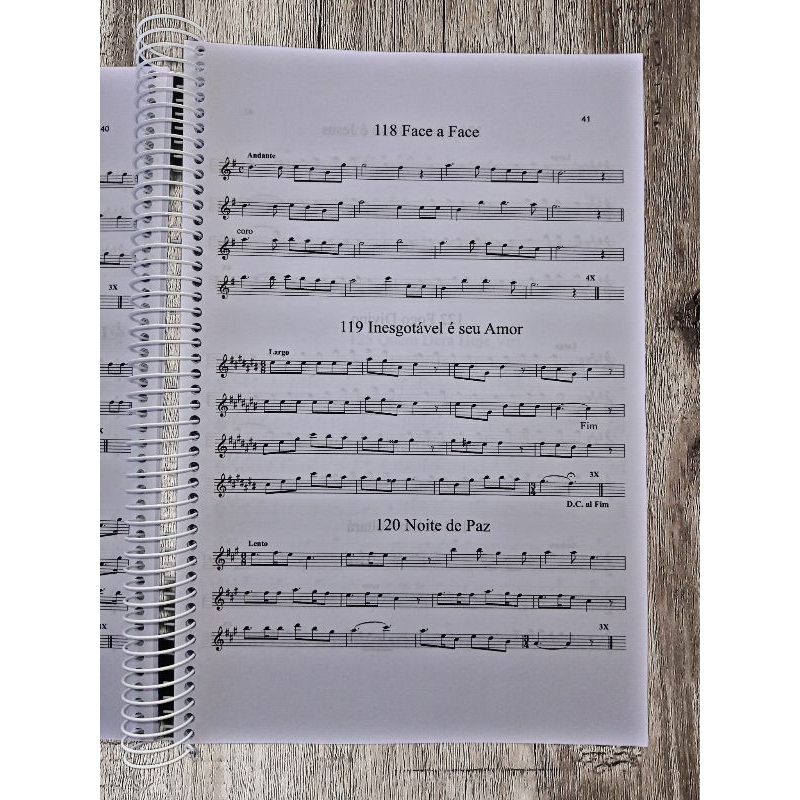 40
3X
41
118 Face a Face
Andante
coro
4X
119 Inesgotável é seu Amor
Largo
Fim
3X
D.C. al Fim
120 Noite de Paz
Lento
3X
3X